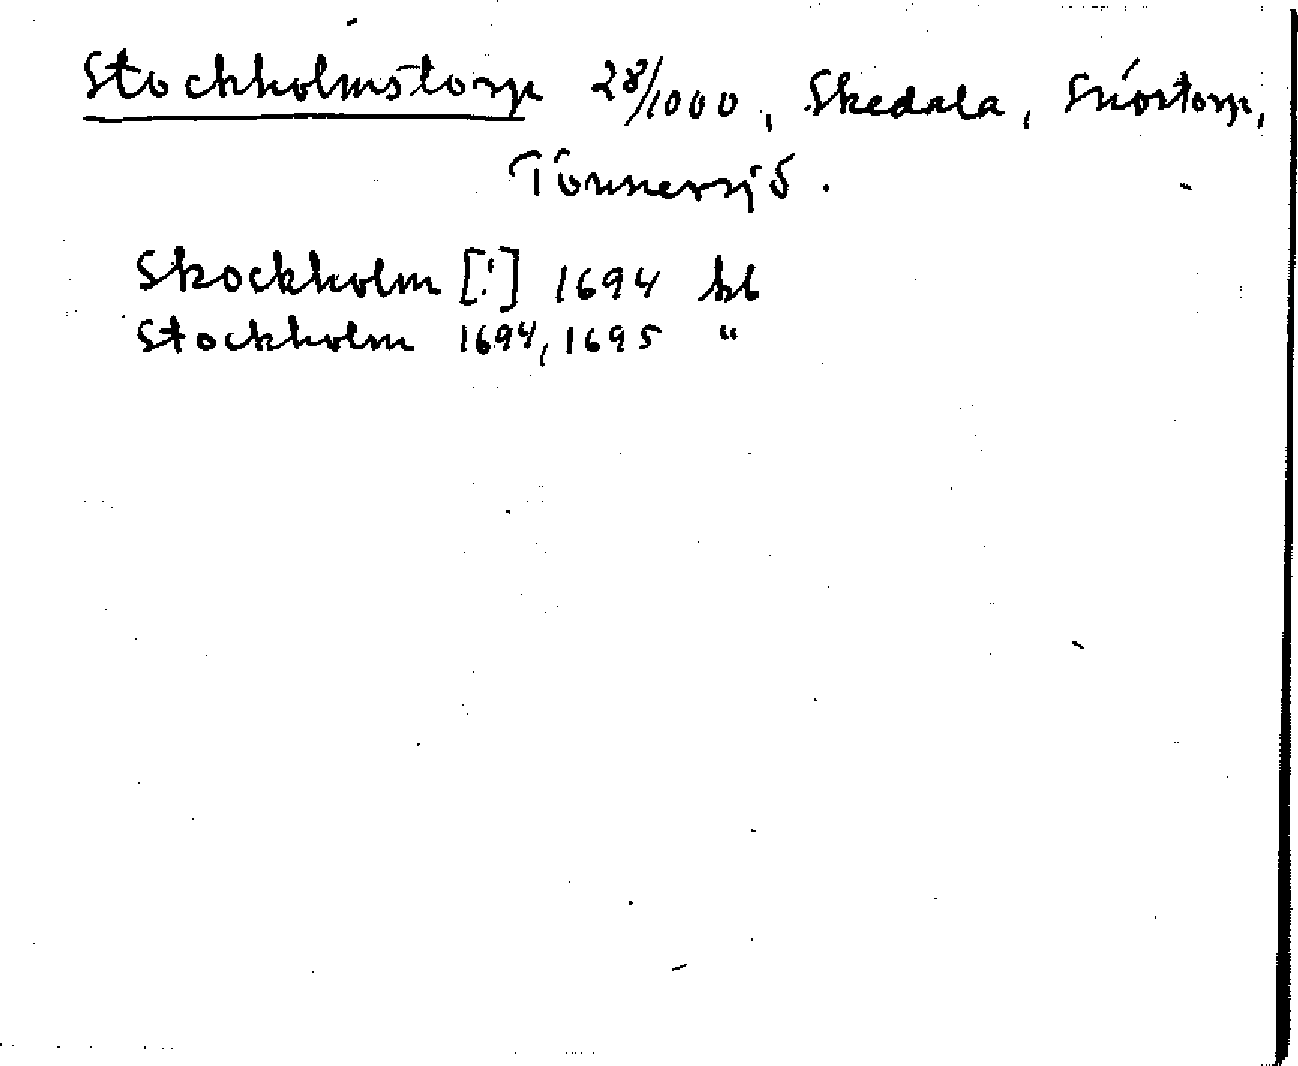 Stockholmstorp 28/1000, Skedala, Snöstorp,
Tönnersjö.
Skockholm [!] 1694 kb
Stockholm 1694, 1695 "